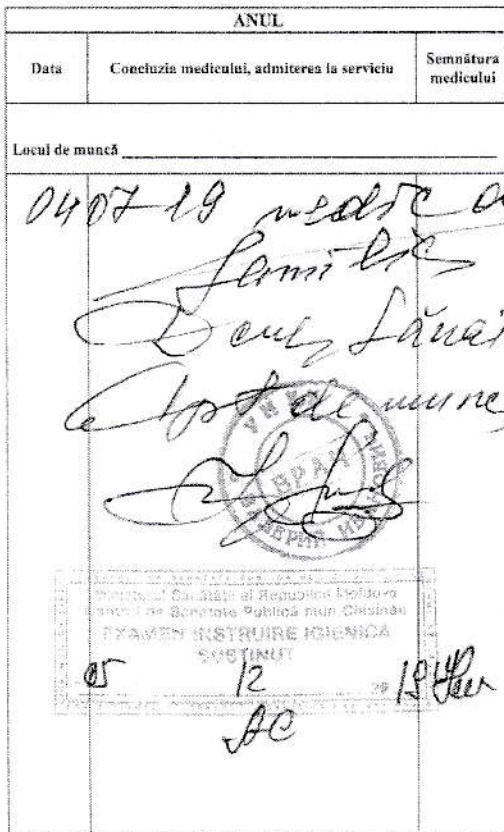 ANUL
Data
Concluzia medicului, admiterea la serviciu
Semnătura medicului
Locul de muncă
04 07 19 medic
familie
sănăt
Apt de munc
ВРАЧ
ВАЛЕРИЙ
Ministerul Sănătății al Republicii Moldova
Centrul de Sănătate Publică mun Chișinău
EXAMEN INSTRUIRE IGIENICA
SUSTINUT
05 12 20 19
AC